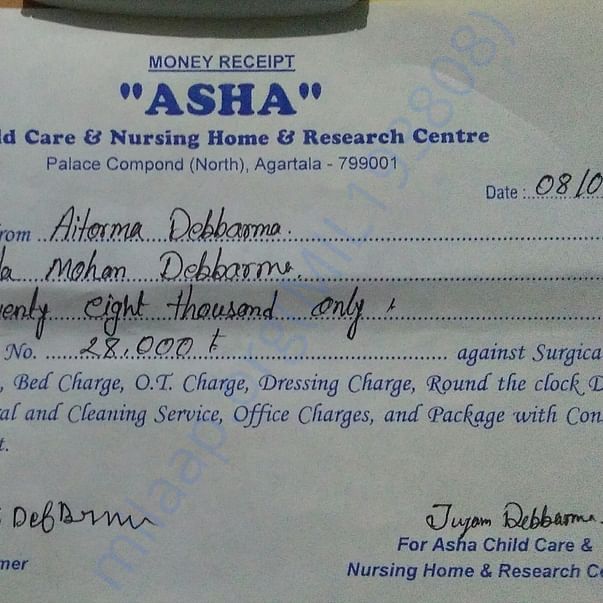 MONEY RECEIPT
"ASHA"
ld Care & Nursing Home & Research Centre
Palace Compond (North), Agartala - 799001
Date : 08/0
rom Aitorma Debbarma.
la Mohan Debbarma.
enly eight thousand only
No. 28,000 against Surgica
, Bed Charge, O.T. Charge, Dressing Charge, Round the clock D
al and Cleaning Service, Office Charges, and Package with Con
t.
Debbarma.
For Asha Child Care &
mer Nursing Home & Research Ce
milaap.org(MIL193808)